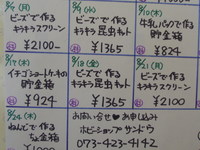 8/9(月)
ビーズで作る
キラキラスクリーン
¥2100-
ビーズで作る
キラキラ昆虫キット
¥1365
8/16(木)
牛乳パックで作る
貯金箱
¥824
8/17(木)
イチゴショートケーキの
貯金箱
¥924
8/18(金)
ビーズで作る
キラキラ昆虫キット
¥1365
8/21(月)
ビーズで作る
キラキラスクリーン
¥2100
8/24(木)
ねんどで作る
ちょ金箱
お問い合せ♥お申し込み
ホビーショップサンドウ
073-423-4142